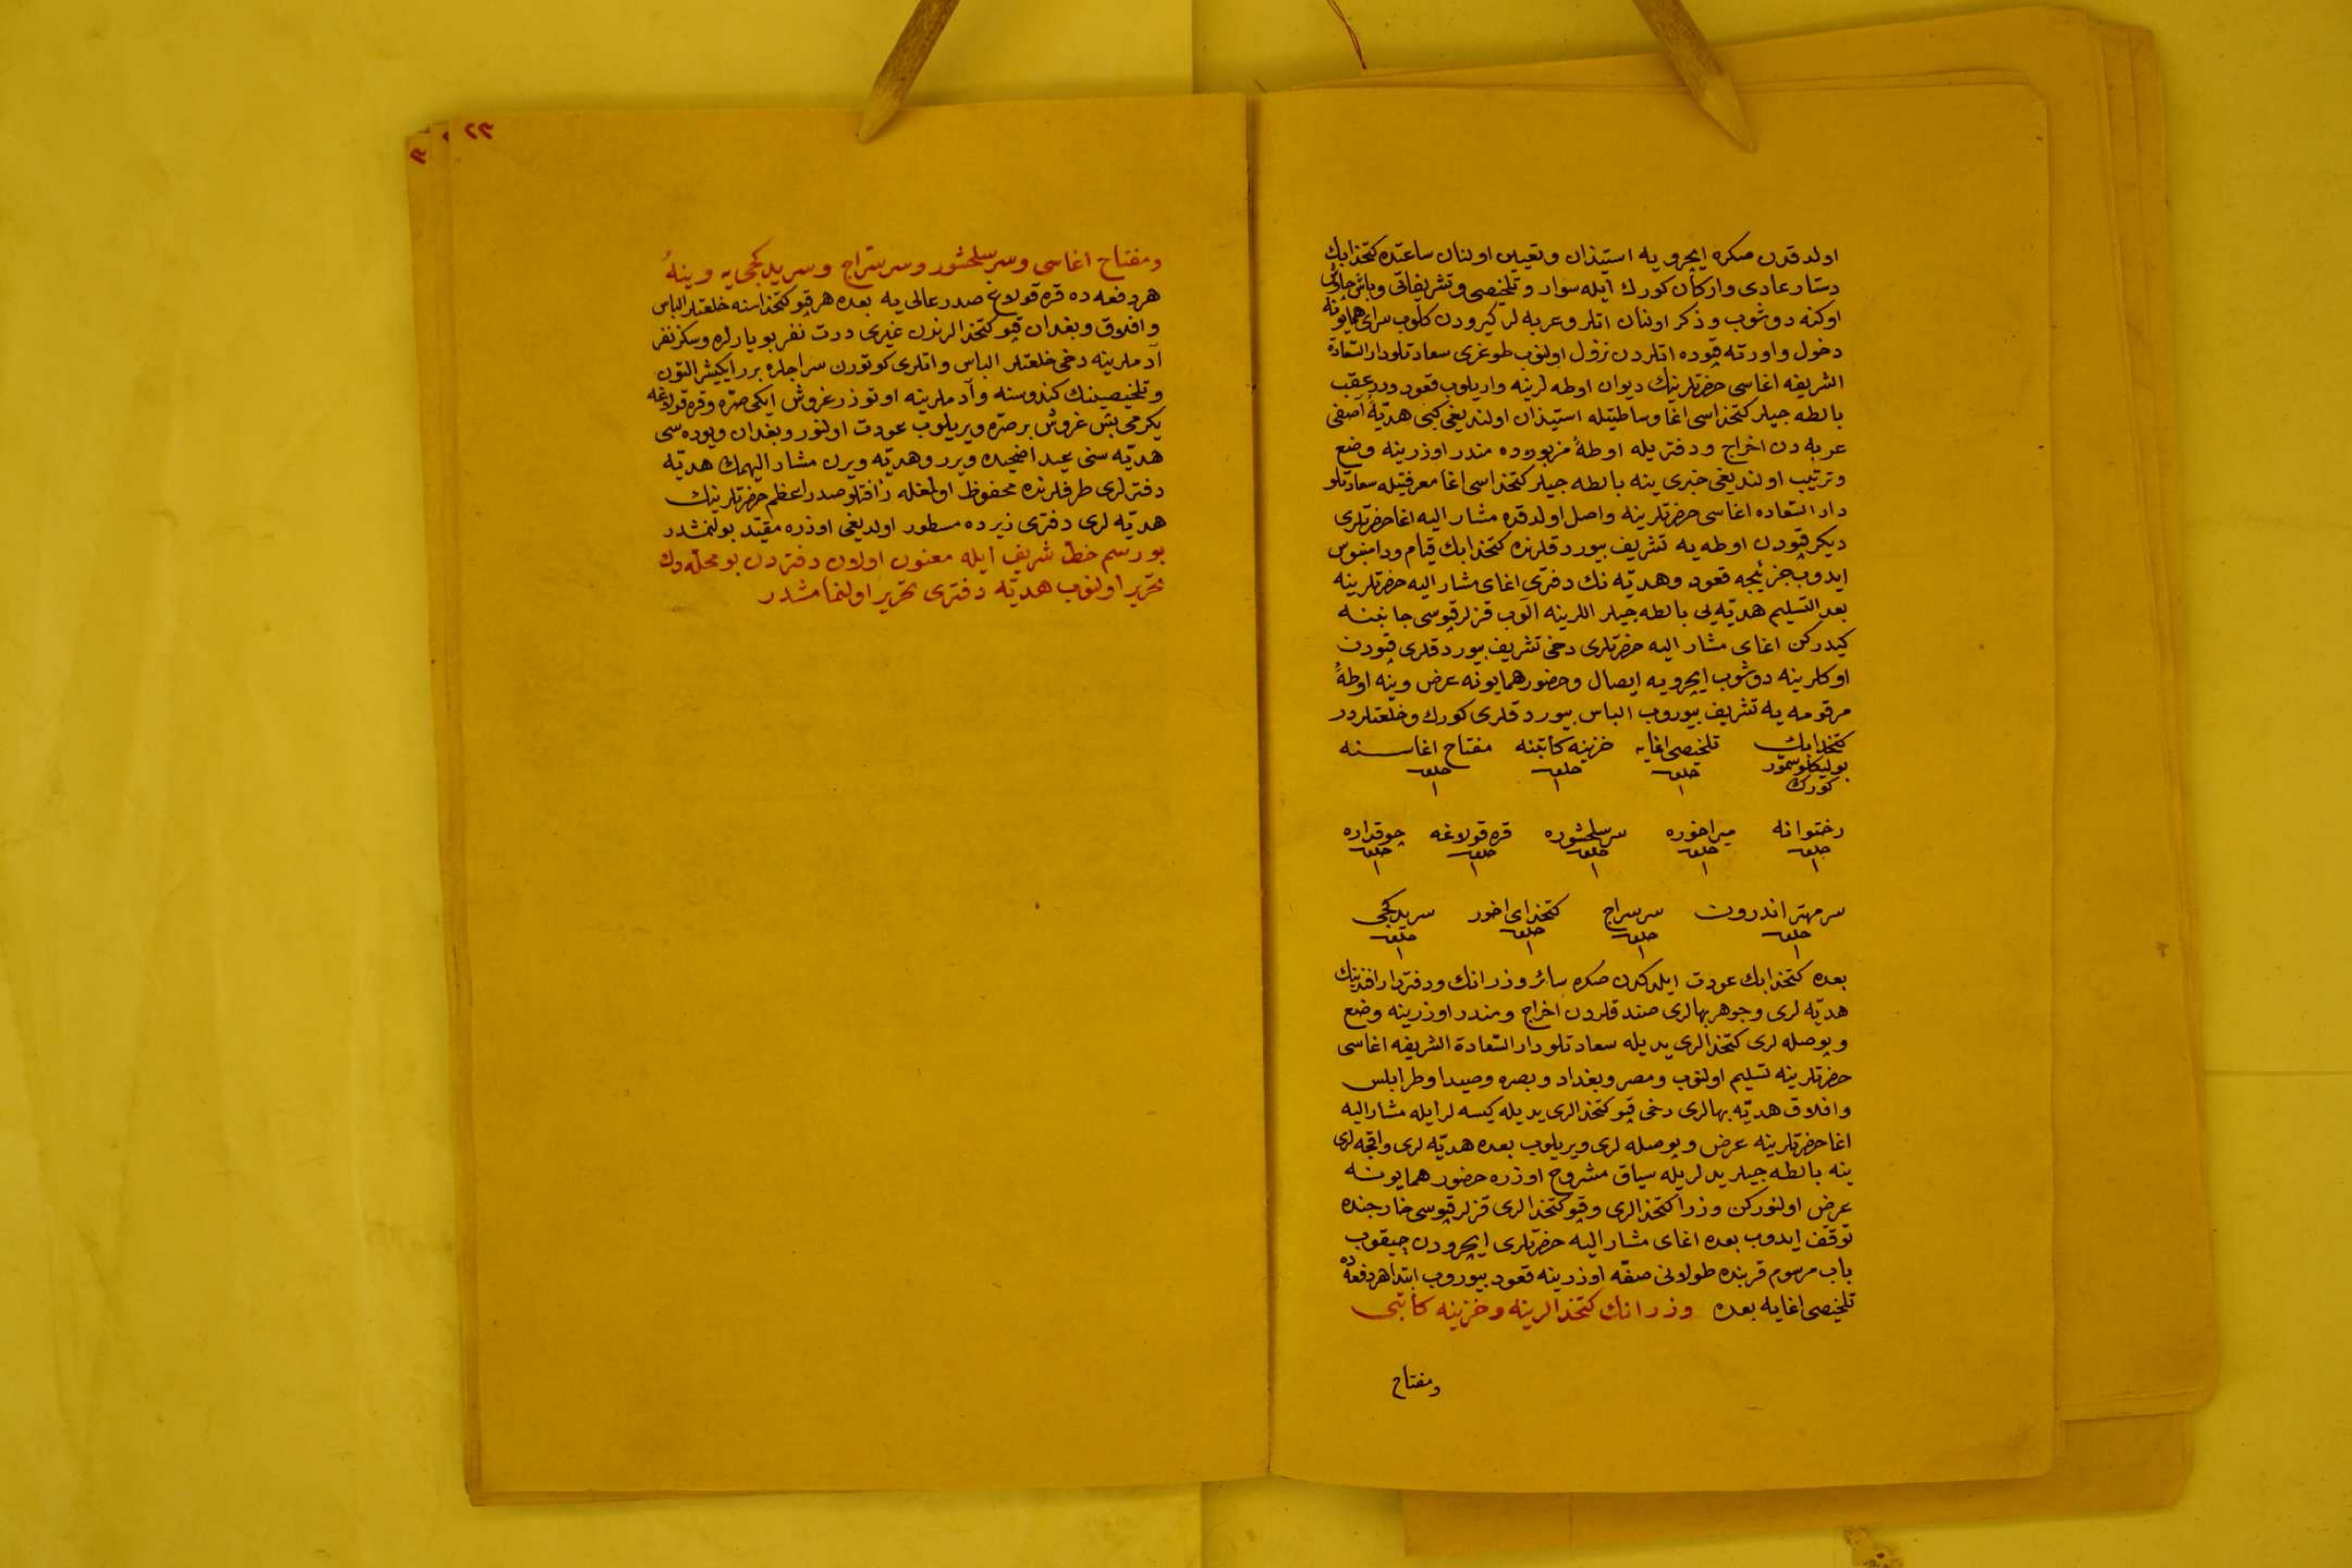 اولدقدن صكره ایچرویه استیذان وتعیین اولنان ساعتده كتخدابك
دستار عادی واركان كورك ایله سوار وتلخیصی وتشریفاتی وباش چاوش
اوكنه دوشوب وذكر اولنان اتلر وعربه لر كیرودن كلوب سرای همایونه
دخول واورته قپوده اتلردن نزول اولنوب طوغری سعادتلو دار السّعادة
الشریفه اغاسی حضرتلرینك دیوان اوطه لرینه واریلوب قعود ودرعقب
بالطه جیلر كتخداسی اغا وساطتیله استیذان اولندیغی كبی هدیّهٔ آصفی
عربه دن اخراج ودفتریله اوطهٔ مزبوره ده مندر اوزرینه وضع
وترتیب اولندیغی خبری ینه بالطه جیلر كتخداسی اغا معرفتیله سعادتلو
دار السّعاده اغاسی حضرتلرینه واصل اولدقده مشار الیه اغا حضرتلری
دیكر قپودن اوطه یه تشریف بیوردقلرنده كتخدابك قیام ودامنبوس
ایدوب جزئیجه قعود وهدیّه نك دفتری اغای مشار الیه حضرتلرینه
بعد التسلیم هدیّه یی بالطه جیلر اللرینه الوب قزلر قپوسی جانبنه
كیدركن اغای مشار الیه حضرتلری دخی تشریف بیوردقلری قپودن
اوكلرینه دوشوب ایچرویه ایصال وحضور همایونه عرض وینه اوطهٔ
مرقومه یه تشریف بیوروب الباس بیوردقلری كورك وخلعتلردر
كتخدابك تلخیصی اغایه خزینه كاتبنه مفتاح اغاسنه
سمّور كورك خلعت ١ خلعت ١ خلعت ١
رختوانه میراخوره سر سلحشوره قره قولاغه چوقداره
خلعت ١ خلعت ١ خلعت ١ خلعت ١ خلعت ١
سر مهتر اندرون سر سراج كتخدای اخور سر یدكجی
خلعت ١ خلعت ١ خلعت ١ خلعت ١
بعده كتخدابك عودت ایلدكدن صكره سائر وزرانك ودفتردار افندینك
هدیّه لری وجوهر بهالری صندقلردن اخراج ومندر اوزرینه وضع
وپوصله لری كتخدالری یدیله سعادتلو دار السّعادة الشریفه اغاسی
حضرتلرینه تسلیم اولنوب ومصر وبغداد وبصره وصیدا وطرابلس
وافلاق هدیّه بهالری دخی قپو كتخدالری یدیله كیسه لر ایله مشار الیه
اغا حضرتلرینه عرض وپوصله لری ویریلوب بعده هدیّه لری واقچه لری
ینه بالطه جیلر یدلریله سیاق مشروح اوزره حضور همایونه
عرض اولنوركن وزرا كتخدالری وقپو كتخدالری قزلر قپوسی خارجنده
توقّف ایدوب بعده اغای مشار الیه حضرتلری ایچرودن چیقوب
باب مرسوم قربنده طولانی صفّه اوزرینه قعود بیوروب ابتدا هر دفعه ده
تلخیصی اغایه بعده وزرانك كتخدالرینه وخزینه كاتبی
ومفتاح
٢٣
ومفتاح اغاسی وسر سلحشور وسر سرّاج وسر یدكجی یه وینهٔ
هر دفعه ده قره قولاغ صدر عالی یه بعده هر قپو كتخداسنه خلعتلر الباس
وافلاق وبغدان قپو كتخدالرندن غیری درت نفر بویارلره وسكز نفر
آدملرینه دخی خلعتلر الباس واتلری كوتورن سراجلره برر ایكیشر التون
وتلخیصینك كندوسنه وآدملرینه اوتوزر غروش ایكی صرّه وقره قولاغه
یكرمی بش غروش بر صرّه ویریلوب عودت اولنور وبغدان ویوده سی
هدیّه سنی عید اضحیده ویرر وهدیّه ویرن مشار الیهمك هدیّه
دفترلری طرفلرنده محفوظ اولمغله رأفتلو صدر اعظم حضرتلرینك
هدیّه لری دفتری زیرده مسطور اولدیغی اوزره مقیّد بولنمشدر
بو رسم خطّ شریف ایله معنون اولان دفتردن بو محلّه دك
تحریر اولنوب هدیّه دفتری تحریر اولنمامشدر